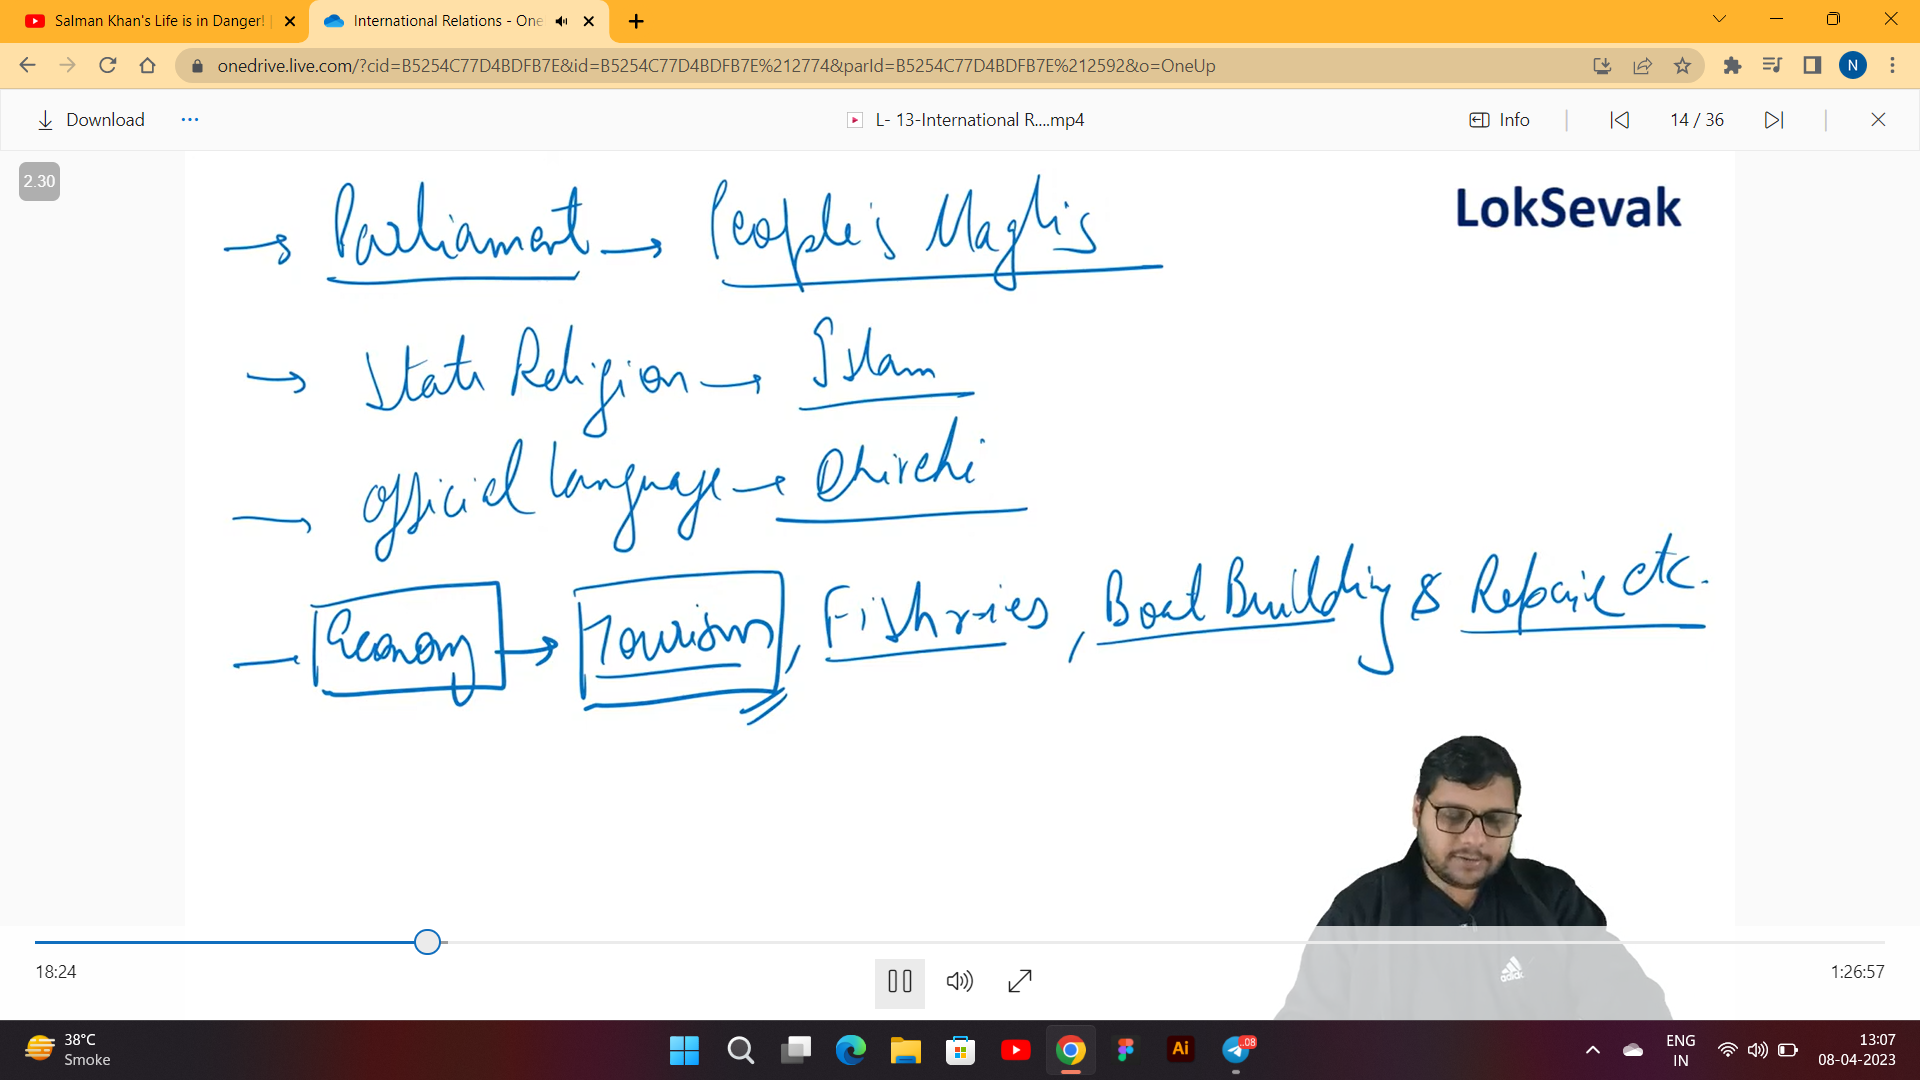 Salman Khan's Life is in Danger!
International Relations - One
onedrive.live.com/?cid=B5254C77D4BDFB7E&id=B5254C77D4BDFB7E%212774&parId=B5254C77D4BDFB7E%212592&o=OneUp
N
Download
L- 13-International R....mp4
Info
14 / 36
2.30
LokSevak
→ Parliament → People's Maglis
→ State Religion → Islam
→ official language → Dhivehi
→ Economy → Tourism, Fishries, Boat Building & Repair etc.
adidas
18:24
1:26:57
38°C
Smoke
Ai
.08
ENG
IN
13:07
08-04-2023